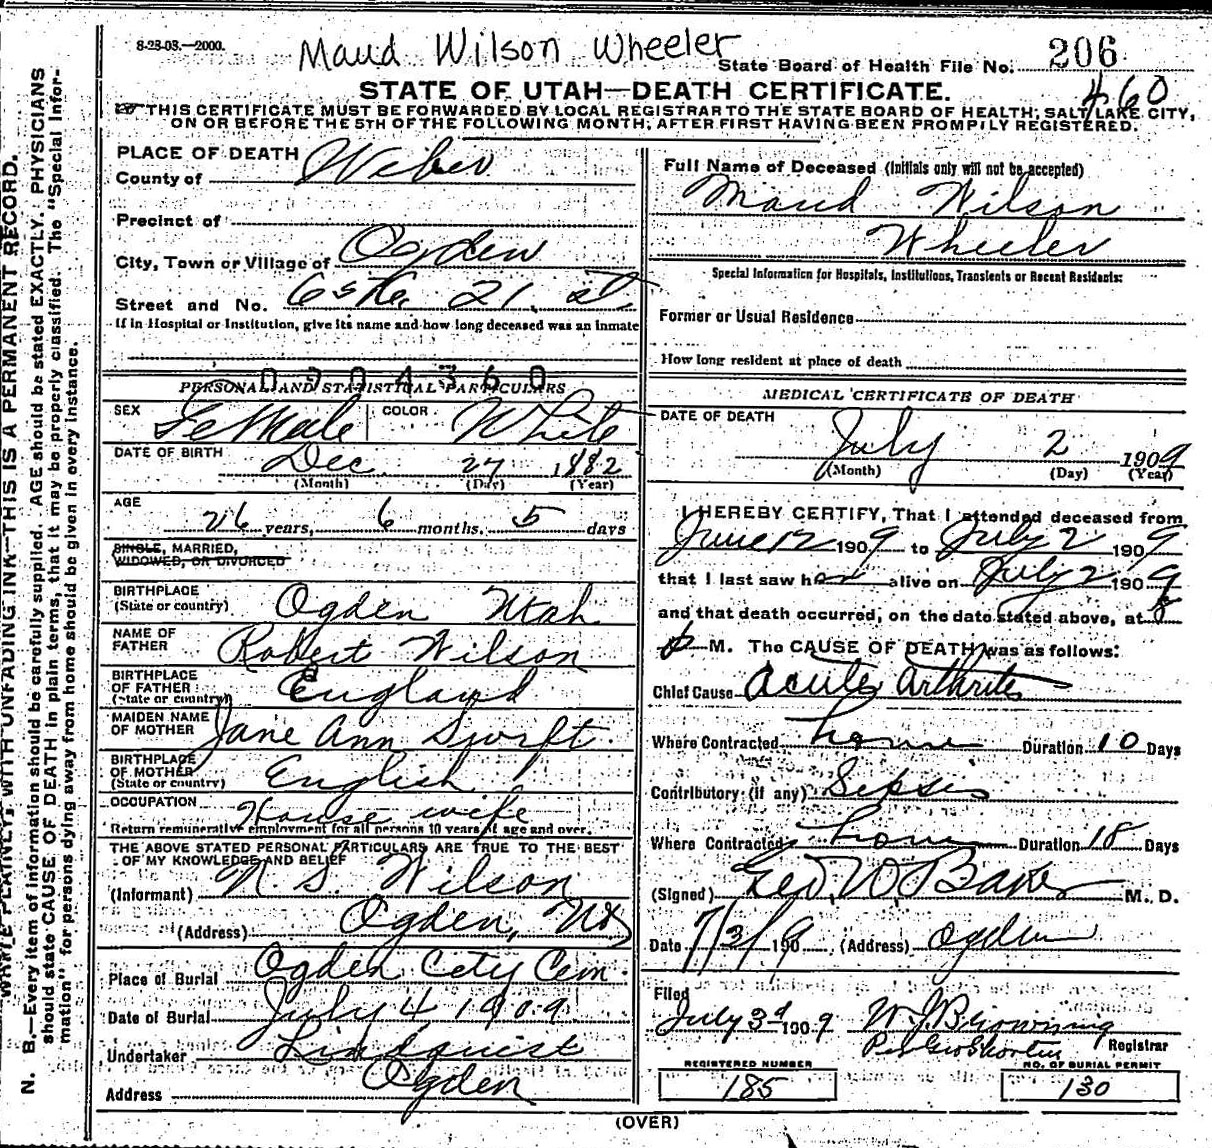 8-23-03.—2000.
Maud Wilson Wheeler
State Board of Health File No. 206
460
STATE OF UTAH—DEATH CERTIFICATE.
THIS CERTIFICATE MUST BE FORWARDED BY LOCAL REGISTRAR TO THE STATE BOARD OF HEALTH, SALT LAKE CITY,
ON OR BEFORE THE 5TH OF THE FOLLOWING MONTH, AFTER FIRST HAVING BEEN PROMPTLY REGISTERED.
PLACE OF DEATH
County of Weber
Precinct of
City, Town or Village of Ogden
Street and No. 21 st
If in Hospital or Institution, give its name and how long deceased was an inmate
PERSONAL AND STATISTICAL PARTICULARS
SEX Female COLOR White
DATE OF BIRTH
Dec 27 1882
(Month) (Day) (Year)
AGE
26 years, 6 months, 5 days
SINGLE, MARRIED,
WIDOWED, OR DIVORCED
BIRTHPLACE
(State or country) Ogden Utah
NAME OF
FATHER Robert Wilson
BIRTHPLACE
OF FATHER
(State or country) England
MAIDEN NAME
OF MOTHER Jane Ann Swift
BIRTHPLACE
OF MOTHER
(State or country) English
OCCUPATION House wife
Return remunerative employment for all persons 10 years of age and over.
THE ABOVE STATED PERSONAL PARTICULARS ARE TRUE TO THE BEST
OF MY KNOWLEDGE AND BELIEF
(Informant) N. S. Wilson
(Address) Ogden, Ut
Place of Burial Ogden City Cem.
Date of Burial July 4 1909
Undertaker Lindquist
Address Ogden
Full Name of Deceased (Initials only will not be accepted)
Maud Wilson
Wheeler
Special Information for Hospitals, Institutions, Transients or Recent Residents:
Former or Usual Residence
How long resident at place of death
MEDICAL CERTIFICATE OF DEATH
DATE OF DEATH
July 2 1909
(Month) (Day) (Year)
I HEREBY CERTIFY, That I attended deceased from
June 12 1909 to July 2 1909
that I last saw her alive on July 2 1909
and that death occurred, on the date stated above, at 8
P M. The CAUSE OF DEATH was as follows:
Chief Cause Acute Arthritis
Where Contracted home Duration 10 Days
Contributory (if any) Sepsis
Where Contracted home Duration 18 Days
(Signed) Geo. W. Baker M. D.
Date 7/3/ 1909 (Address) Ogden
Filed
July 3d 1909 W J Browning
Registrar
REGISTERED NUMBER
185
NO. OF BURIAL PERMIT
130
(OVER)
WRITE PLAINLY, WITH UNFADING INK—THIS IS A PERMANENT RECORD.
N. B.—Every item of information should be carefully supplied. AGE should be stated EXACTLY. PHYSICIANS
should state CAUSE OF DEATH in plain terms, that it may be properly classified. The "Special Infor-
mation" for persons dying away from home should be given in every instance.